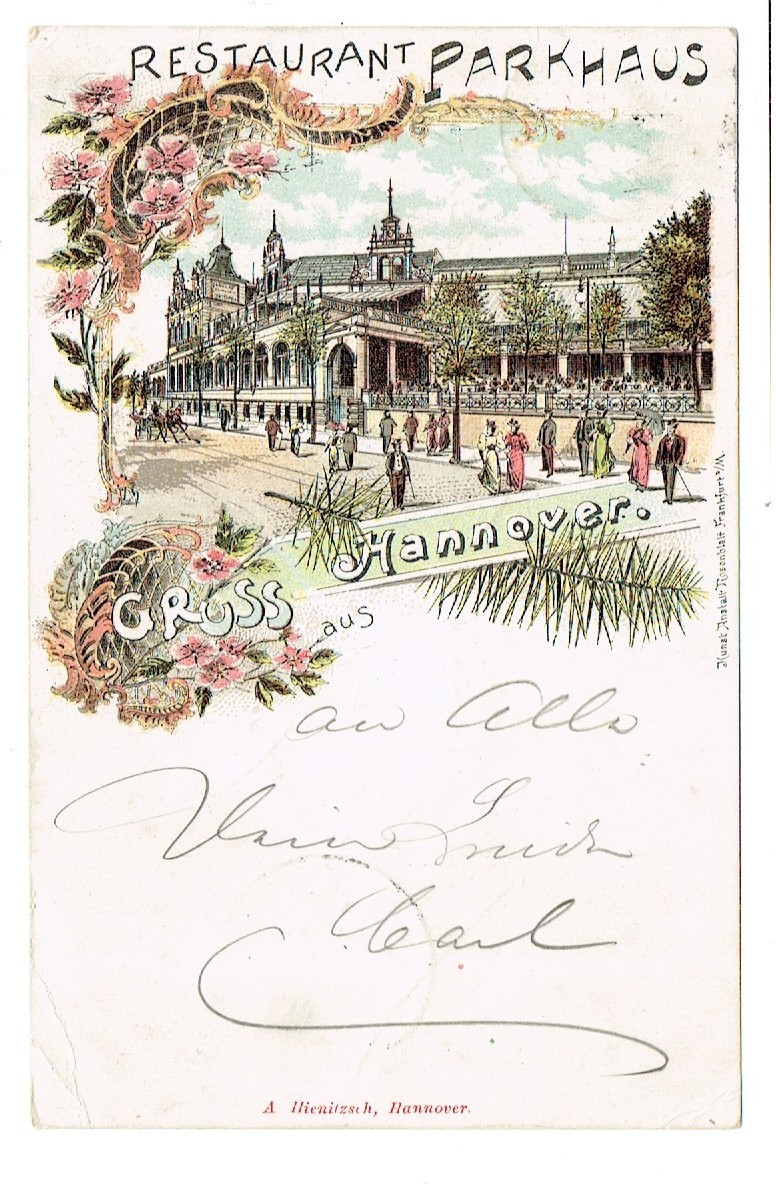 RESTAURANT PARKHAUS
GRUSS aus Hannover.
Kunst Anstalt Rosenblatt Frankfurt a/M.
an Alle
Dein
Carl
A Hienitzsch, Hannover.